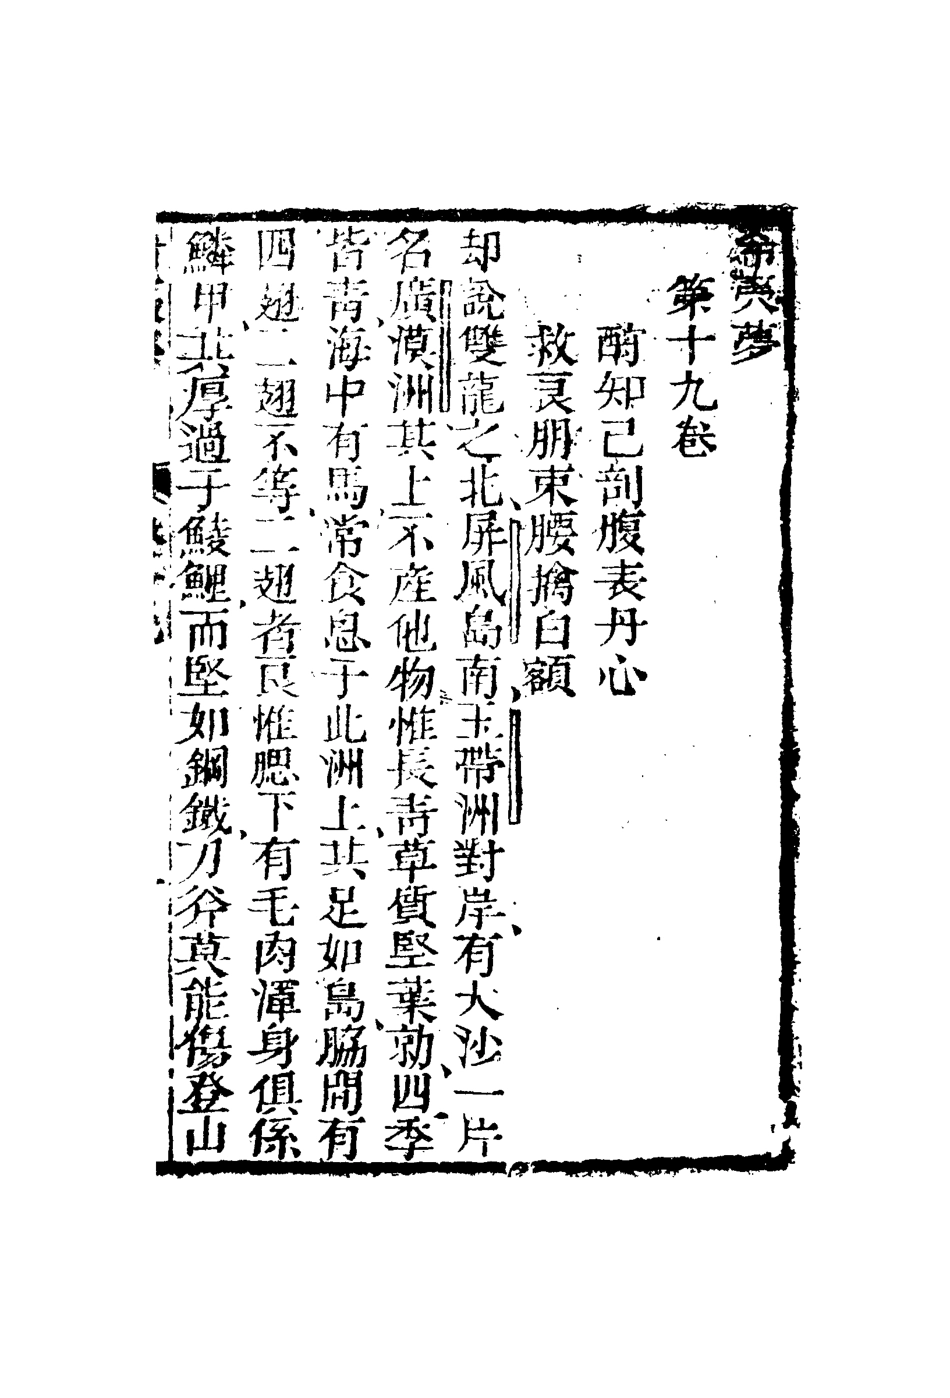 希夷夢
第十九卷
酧知己剖腹表丹心
救良朋束腰擒白額
却說雙龍之北屏風島南玉帶洲對岸有大沙一片
名廣漠洲其上不產他物惟長青草質堅葉勁四季
皆青海中有馬常食息于此洲上其足如島脇間有
四翅二翅不等二翅者良惟腮下有毛肉渾身俱係
鱗甲其厚過于鯪鯉而堅如鋼鐵刀斧莫能傷登山